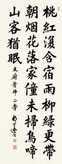 桃紅復含宿雨柳綠更帶
朝烟花落家僮未掃鳥啼
山客猶眠